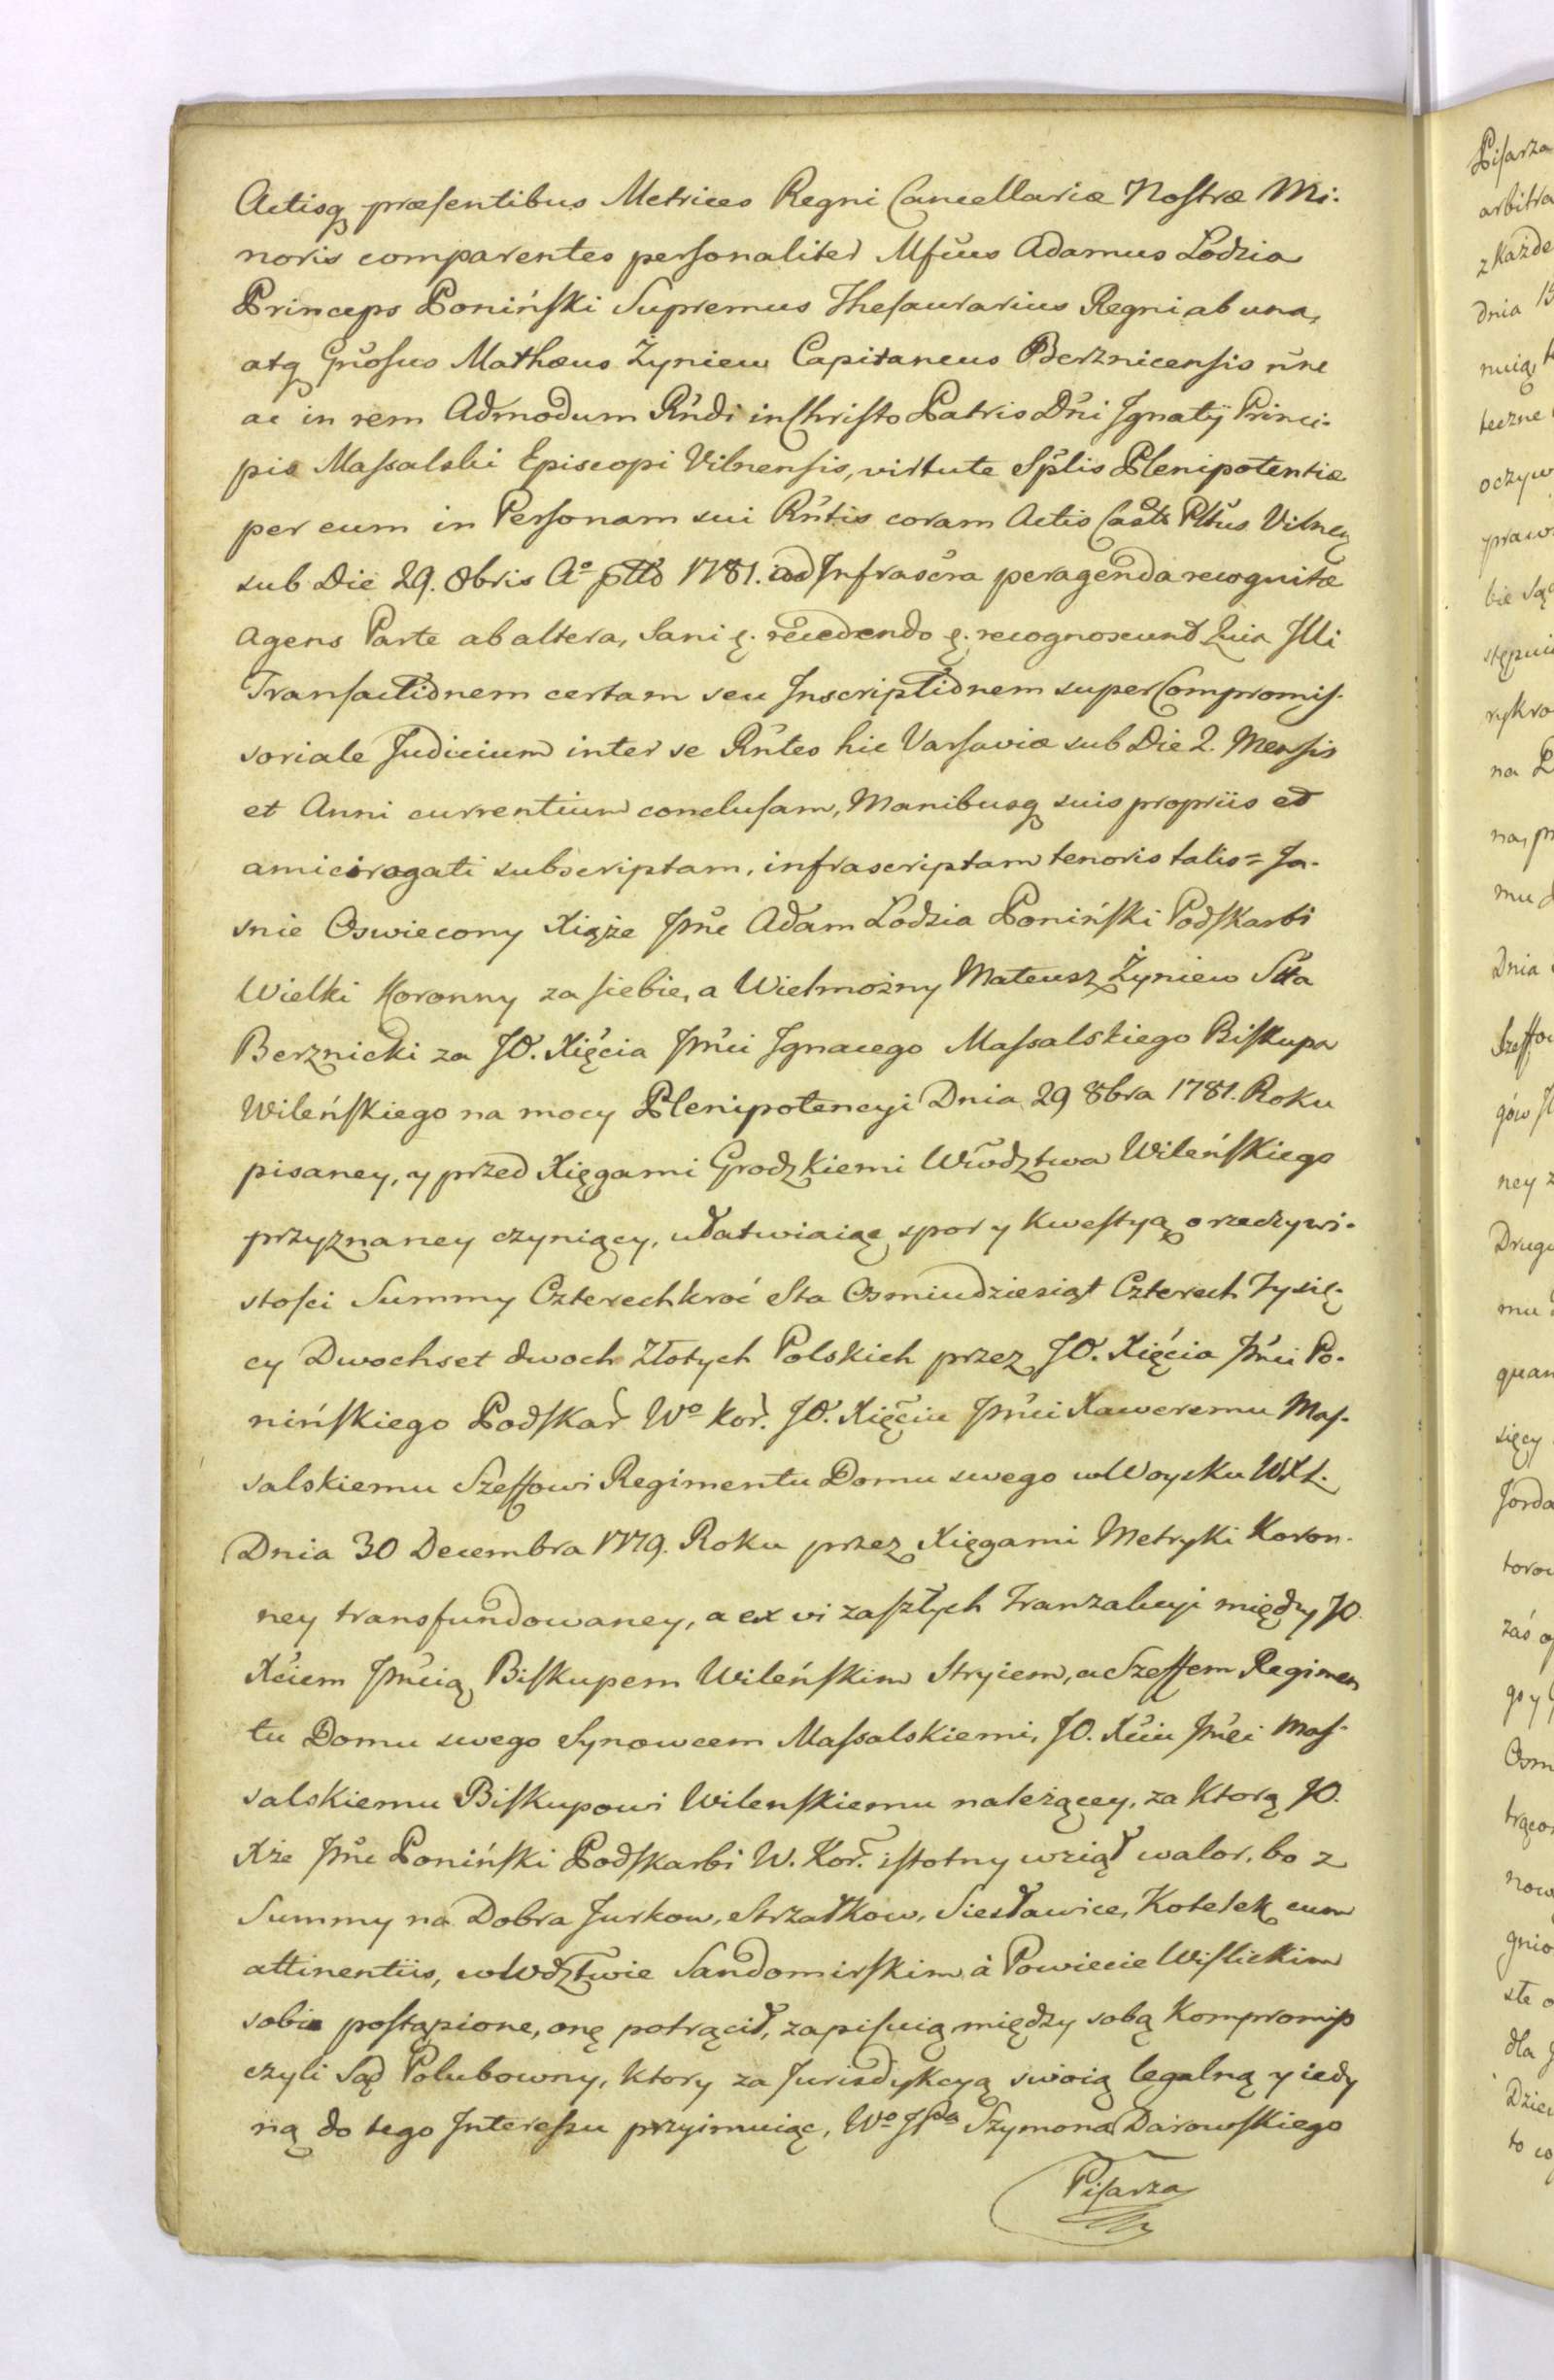 Actisq præsentibus Metrices Regni Cancellariæ Nostræ Mi-
noris comparentes personaliter Mfcus Adamus Lodzia
Princeps Poniński Supremus Thesaurarius Regni ab una,
atq Gnosus Mathæus Żyniew Capitaneus Berznicensis nne
ac in rem Admodum Rndi in Christo Patris Dni Ignatij Princi-
pis Massalski Episcopi Vilnensis, virtute Splis Plenipotentiæ
per eum in Personam sui Rntis coram Actis Castr Pltus Vilnen
sub Die 29. 8bris Aº ptto 1781. ad Infrascra peragenda recognitæ
Agens Parte ab altera, Sani ę. recedendo ę. recognoscunt Quia Illi
Transactionem certam seu Inscriptionem super Compromis-
soriale Judicium inter se Rntes hic Varsaviæ sub Die 2. Mensis
et Anni currentium conclusam, Manibusq suis propriis et
amici rogati subscriptam, infrascriptam tenoris talis = Ja-
snie Oswiecony Xiąże Jmc Adam Lodzia Poniński Podskarbi
Wielki Koronny za siebie, a Wielmożny Mateusz Żyniew Stta
Berznicki za JO. Xięcia Jmci Ignacego Massalskiego Biskupa
Wileńskiego na mocy Plenipotencyi Dnia 29 8bra 1781. Roku
pisaney, y przed Xięgami Grodzkiemi Wwodztwa Wileńskiego
przyznaney czyniący, ułatwiaiąc spor y kwestyą o rzeczywi-
stości Summy Czterechkroć Sta Osmiudziesiąt Czterech Tysię-
cy Dwochset dwoch Złotych Polskich przez JO. Xięcia Jmci Po-
nińskiego Podskar Wº Kor. JO. Xięciu Jmci Xaweremu Mas-
salskiemu Szeffowi Regimentu Domu swego w Woysku WXL.
Dnia 30 Decembra 1779. Roku przez Xięgami Metryki Koron-
ney transfundowaney, a ex vi zaszłych Tranzakcyi między JO.
Xciem Jmcią Biskupem Wileńskim Stryiem, a Szeffem Regimen
tu Domu swego Synowcem Massalskiemi, JO. Xciu Jmci Mas-
salskiemu Biskupowi Wilenskiemu należącey, za ktorą JO.
Xże Jmc Poniński Podskarbi W. Kor. istotny wziął walor, bo z
Summy na Dobra Jurkow, Strzałkow, Siesławice, Kotelek cum
attinentiis, w Wdztwie Sandomirskim à Powiecie Wislickim
sobie postąpione, onę potrącił, zapisuią między sobą Kompromis
czyli Sąd Polubowny, ktory za Jurisdykcyą swoią legalną y iedy
ną do tego Interessu przyimuiąc, Wº JPa Szymona Darowskiego
Pisarza